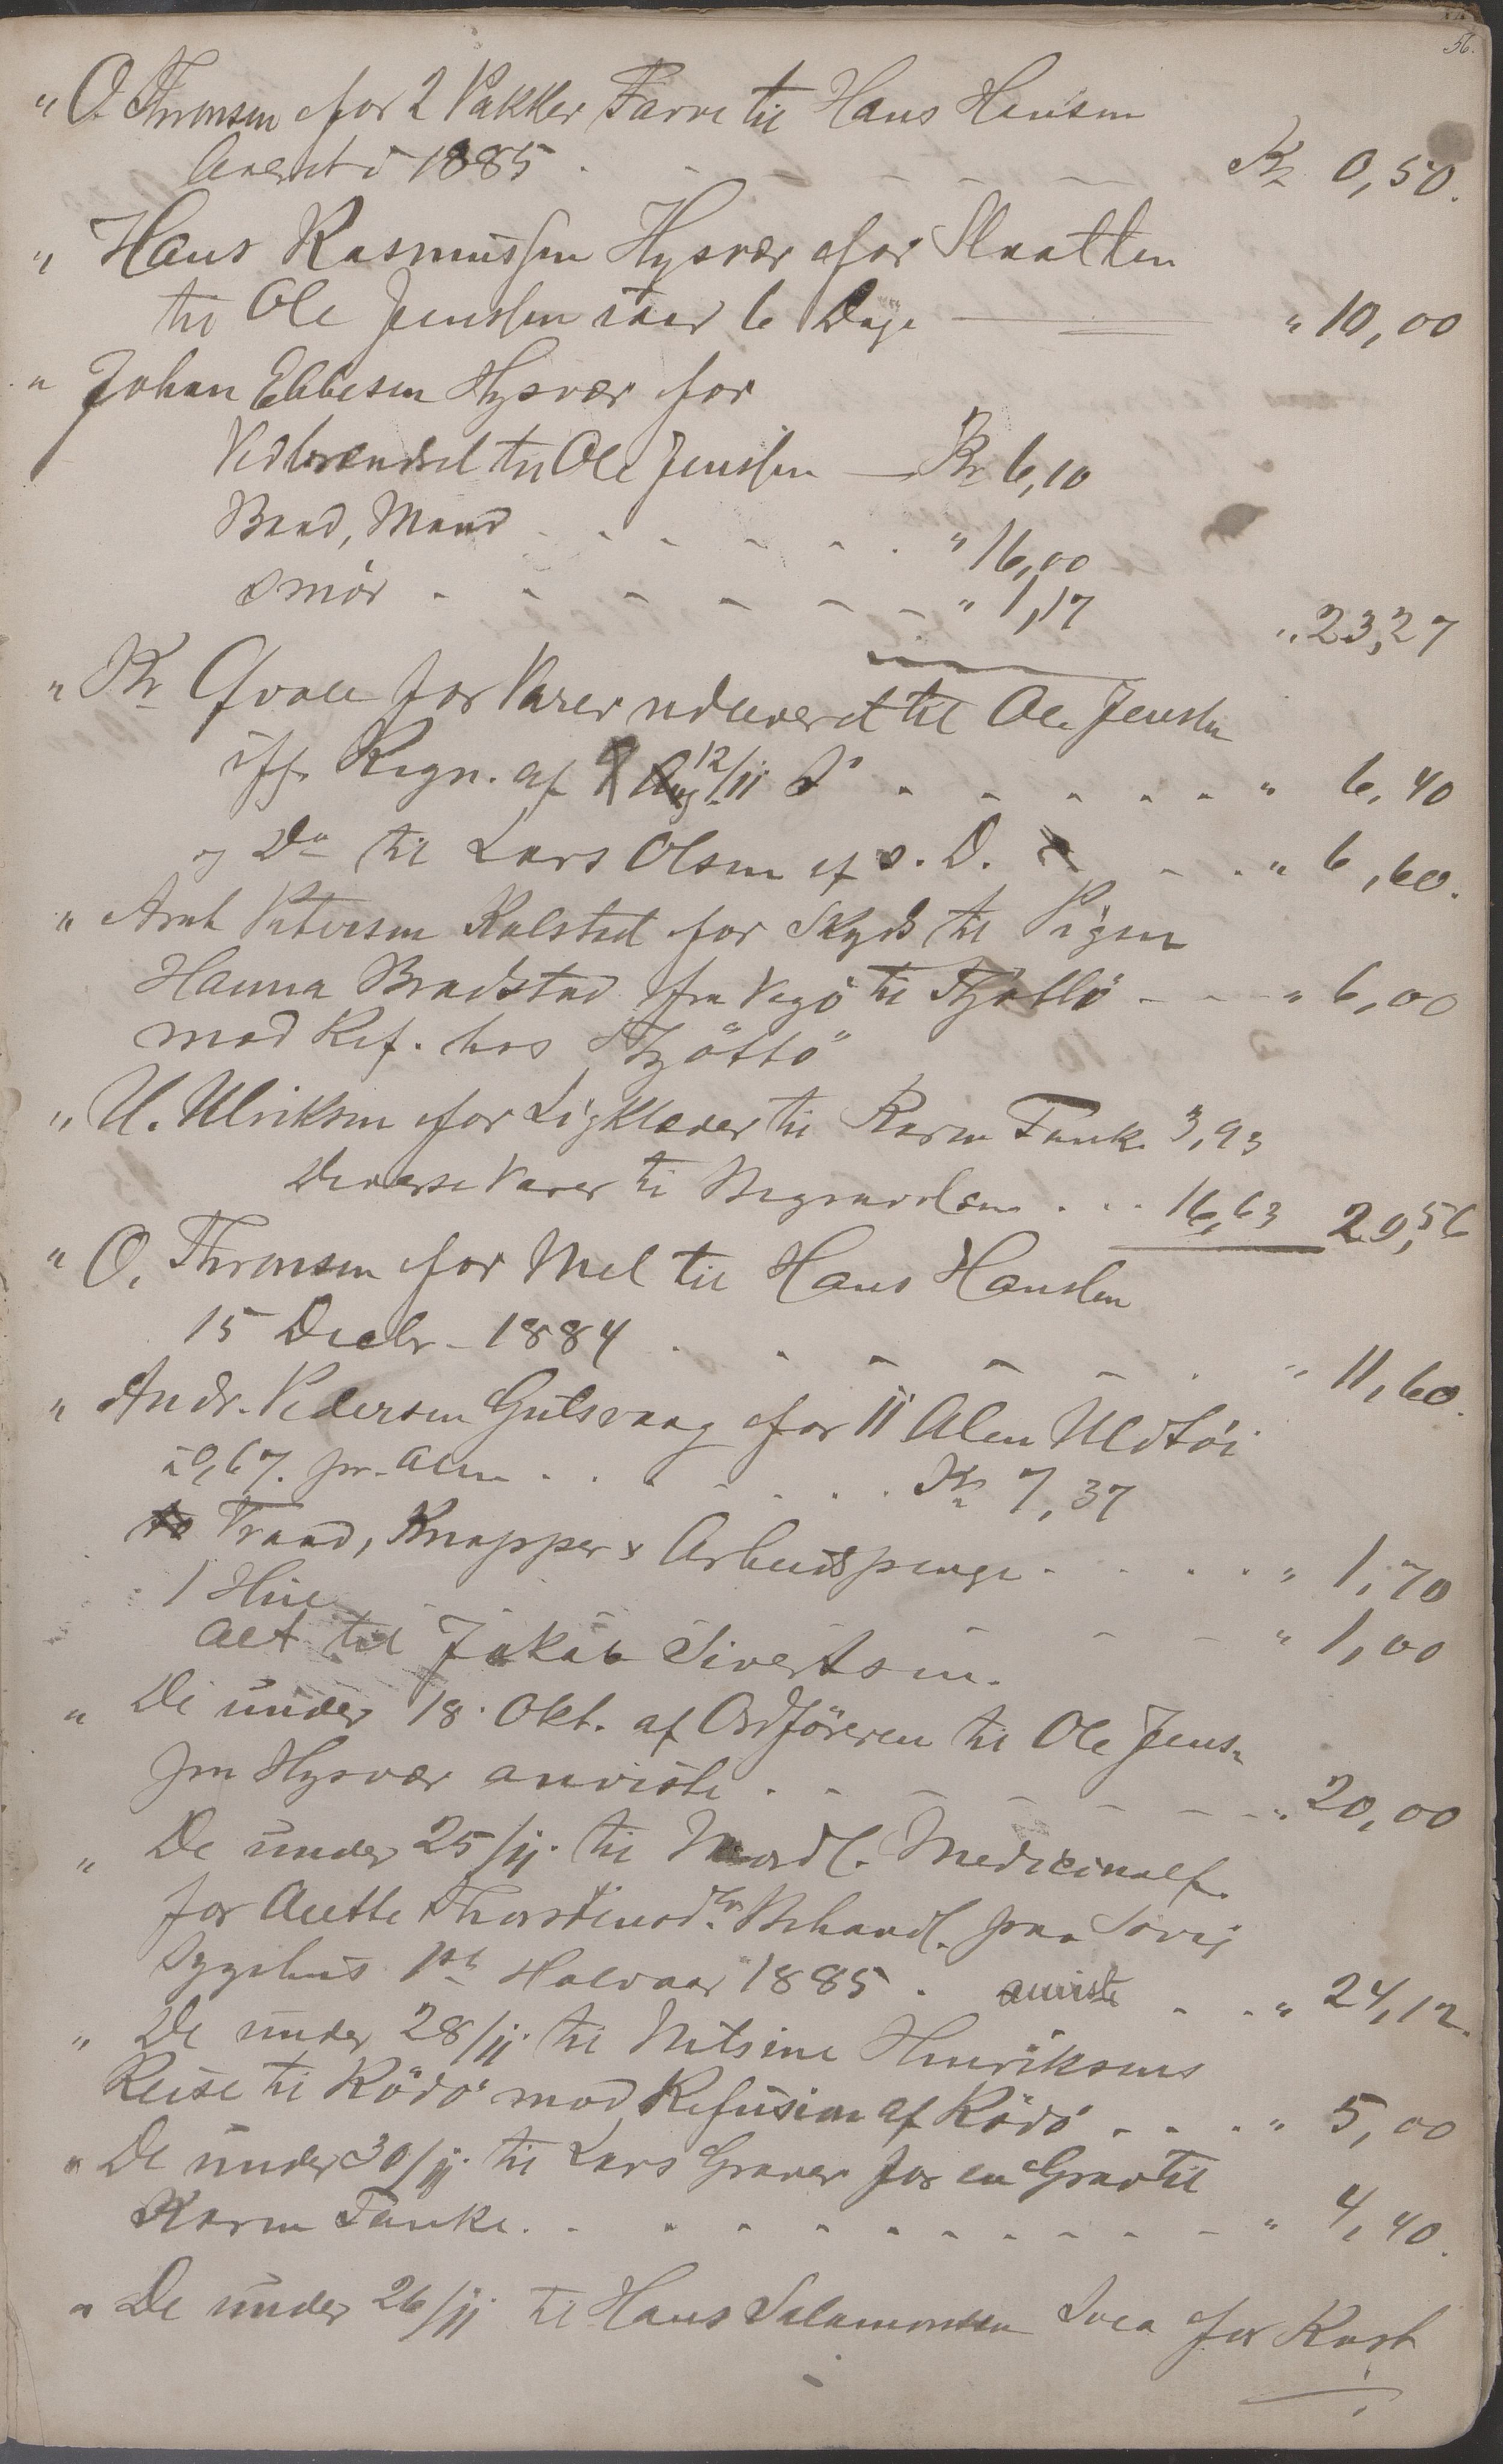 56.
" O. Thronsen for 2 Pakker Farve til Hans Hansen
leveret i 1885 . - - - - - Kr 0,50.
" Hans Rasmussen Hysvær for Slaatten
til Ole Jenssen iaar 6 Dage — " 10,00
" Johan Ebbesen Hysvær for
Vedbrændsel til Ole Jenssen — Kr 6,10
Baad, Mand - - - - - . " 16,00
Smör - - - - - - " 1,17 " 23,27
" Kr Qvale for Varer udleveret til Ole Jenssen
iflg. Regn. af 12/11 D. - - - - - " 6,40
og Do til Lars Olsen af s. D. - - . " 6,60.
" Arnt Petersen Rolsted for Skyds til Pigen
Hanna Bradstad fra Vegö til Tjøttö - - - " 6,00
mod Ref. hos Tjöttö
" U. Ulriksen for Ligklæder til Karen Fanke 3,93
Diverse Varer til Begravelsen . . . 16,63 20,56
" O. Thronsen for Mel til Hans Hanssen
15 Decbr - 1884 . - - - - . " 11,60.
" Andr. Pedersen Gutsvaag for 11 Alen Uldtöi
à 0,67. pr. Alen . . . - - . . Kr 7,37
Traad, Knapper & Arbeidspenge . . . . " 1,70
1 Hue - - - - - - " 1,00
Alt til Jakob Sivertsen.
" De under 18. Okt. af Ordföreren til Ole Jens-
sen Hysvær anviste . - - - - - - " 20,00
" De under 25/11. til Nordl. Medicinalf.
for Anette Thorstensdtr Behandl. paa Sövig
Sygehus 1ste Halvaar 1885 . anviste - . " 24,12.
" De under 28/11. til Nilsine Henriksens
Reise til Rödö mod Refusion af Rödö . . . " 5,00
" De under 30/11. til Lars Graver for en Grav til
Karen Fanke. . . - - - - - - - " 4,40.
" De under 26/11 til Hans Salamonsen for Kost